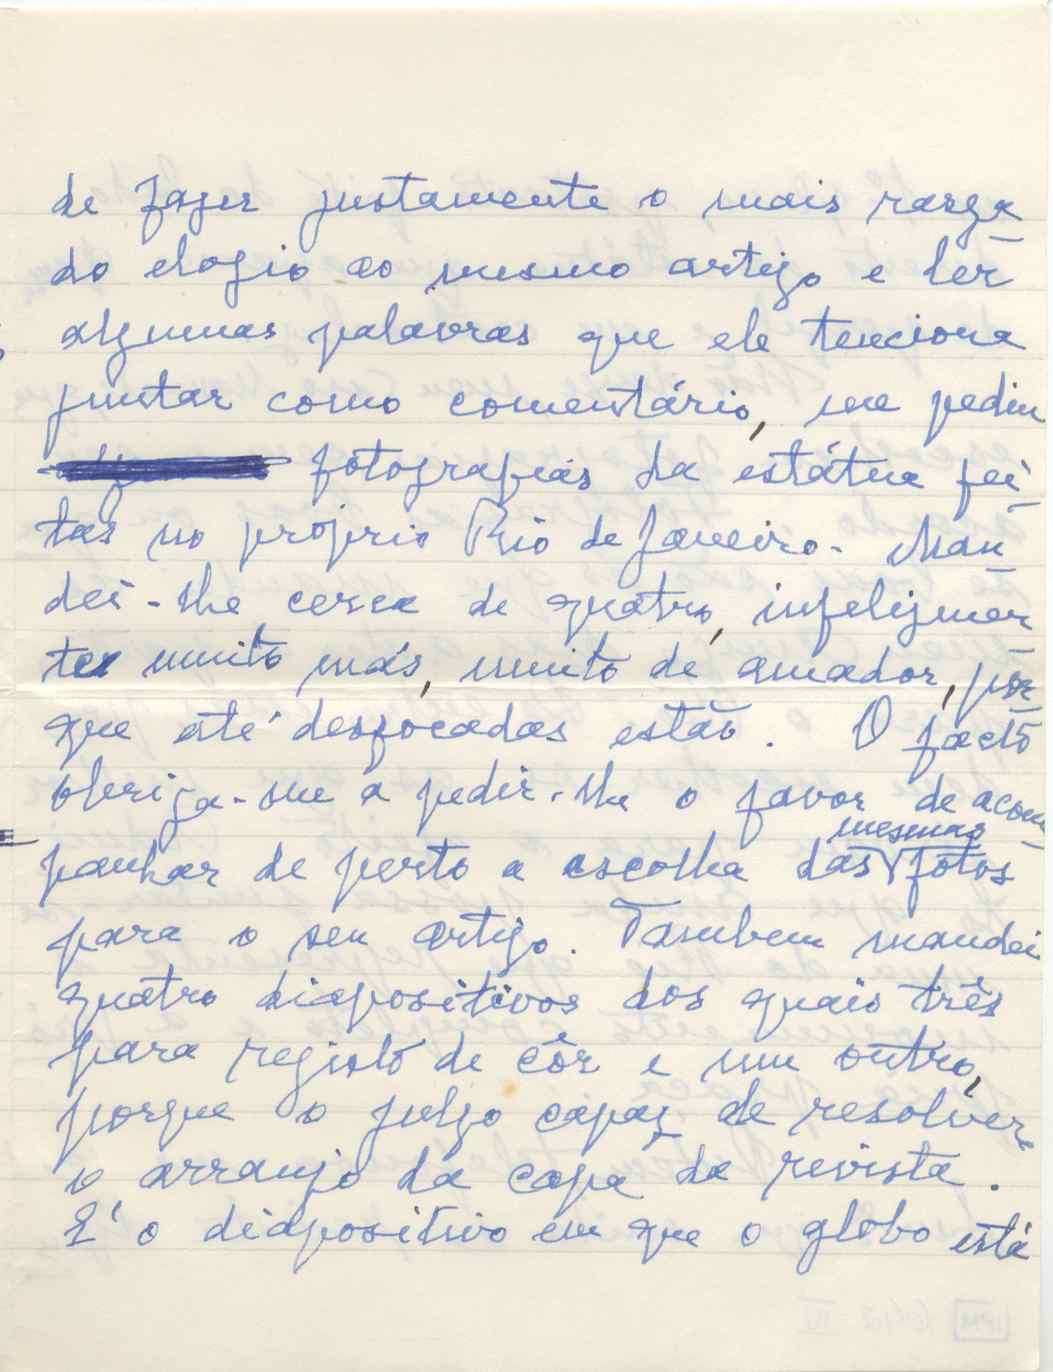 de fazer justamente o mais rasga
do elogio ao mesmo artigo e ler
algumas palavras que ele tenciona
juntar como comentário, me pediu
fotografias da estátua fei-
tas no próprio Rio de Janeiro. Man-
dei-lhe cerca de quatro, infelizmen
te muito más, muito de amador, por-
que até desfocadas estão. O facto
obriga-me a pedir-lhe o favor de acom-
panhar de perto a escolha das mesmas fotos
para o seu artigo. Tambem mandei
quatro diapositivos dos quais três
para registo de côr e um outro,
porque o julgo capaz de resolver
o arranjo da capa da revista.
E' o diapositivo em que o globo está